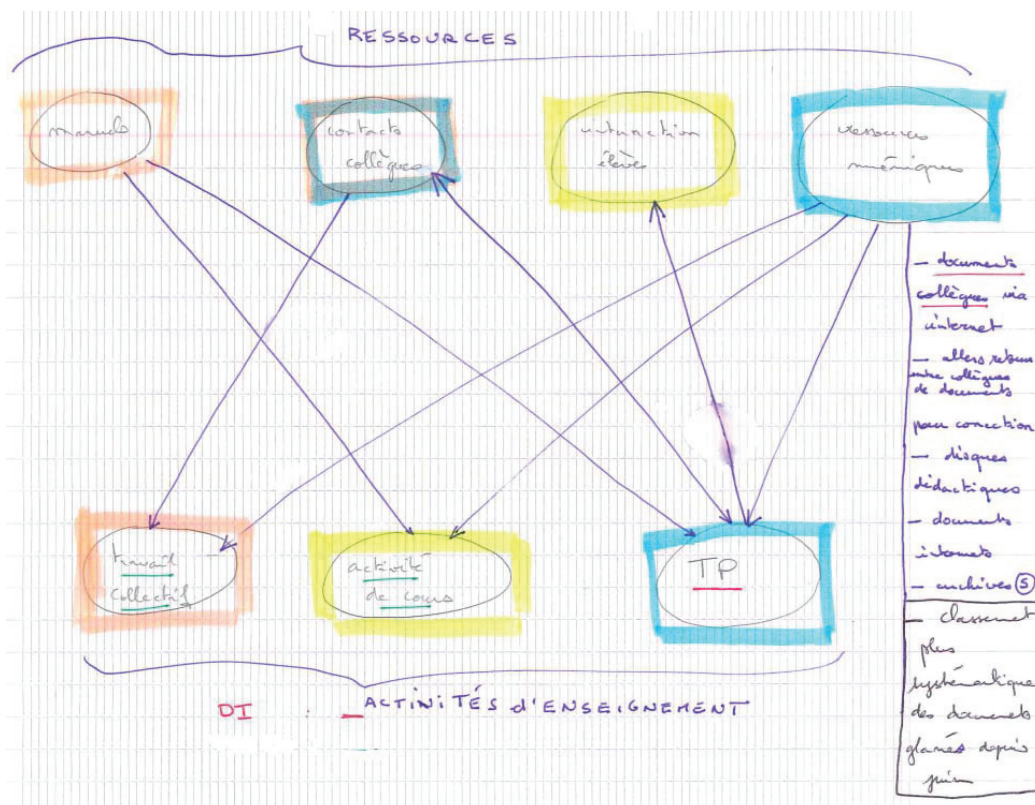 RESSOURCES
manuels
contacts
collègues
interaction
élèves
ressources
numériques
— documents
collègues via
internet
— allers retour
entre collègues
de documents
pour correction
— disques
didactiques
— documents
internets
— archives (S)
— classement
plus
systématique
des documents
glanés depuis
juin
travail
collectif
activité
de cours
TP
DI : — ACTIVITÉS d'ENSEIGNEMENT